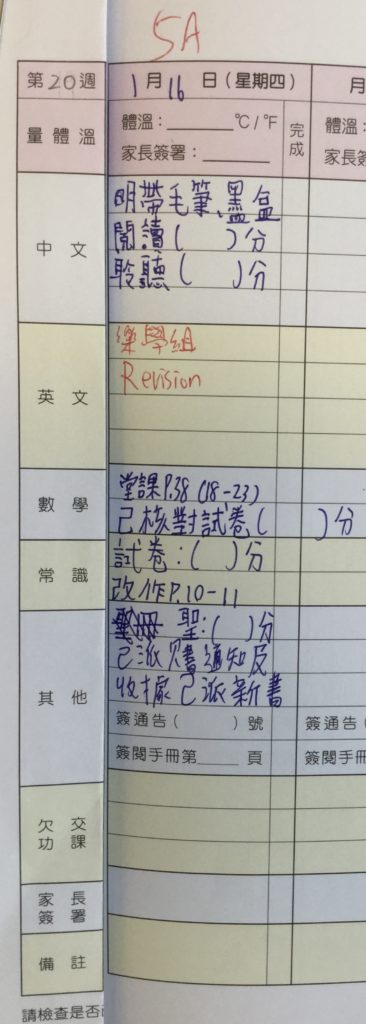 5A
第20週 1月16日(星期四) 月
量體溫 體溫:______℃/℉ 完成 體溫:
家長簽署:______ 家長簽
中文 明帶毛筆、墨盒
閱讀( )分
聆聽( )分
英文 樂學組
Revision
數學 堂課P.38 (18-23)
已核對試卷( )分
常識 試卷:( )分
改作P.10-11
其他 聖:( )分
已派欠書通知及
收據已派新書
簽通告( )號 簽通告(
簽閱手冊第____頁 簽閱手冊
欠交功課
家長簽署
備註
請檢查是否